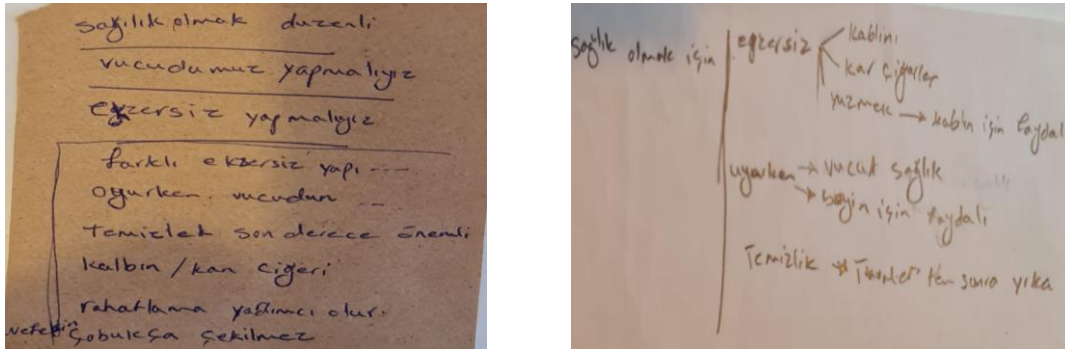 sağılık olmak düzenli
vucudumuz yapmalıyız
egzersiz yapmalıyız
farklı ekzersiz yapı ---
oyurken vucudun --
temizlek son derece önemli
kalbin / kan ciğeri
rahatlama yardımcı olur.
nefesin çobukça çekilmez
sağlık olmak için
egzersiz
kablini
kar ciğerler
yüzmek → kablin için faydal
uyurken → vucut sağlık
→ beyin için faydalı
Temizlik → ten sonra yıka